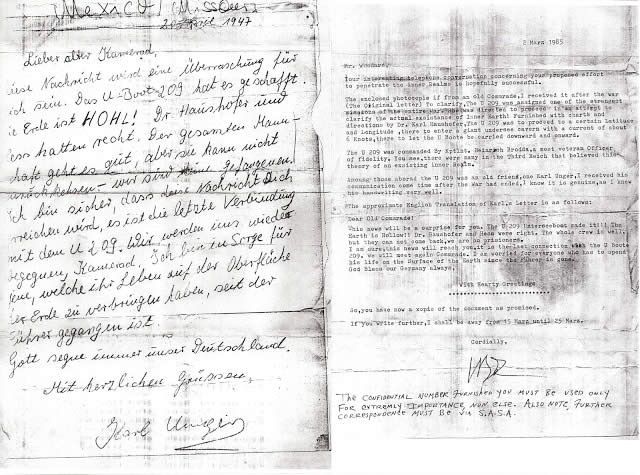 Mexico/Missouri
1947
Lieber alter Kamerad,
Nachricht wird eine Überraschung für
ich sein. Das U-Boot 209 hat es geschafft.
e Erde ist HOHL! Dr Haushofer und
ess hatten recht. Der gesamten Mann-
haft geht es gut, aber sie kann nicht
wir sind keine Gefangenen.
Ich bin sicher, dass diese Nachricht Dich
rreichen wird, es ist die letzte Verbindung
mit dem U 209. Wir werden uns wieder
begegnen, Kamerad, Ich bin in Sorge für
welche ihr Leben auf der Oberfläche
der Erde zu verbringen haben, seit der
Führer gegangen ist
Gott segne immer unser Deutschland.
Mit herzlichen Grüssen,
Karl Unger
2 Marz 1985
Mr.
Your interesting telephone conversation concerning your proposed effort
to penetrate the Inner Realms is hopefully successful.
The enclosed photocopie if from an old Comrade, I received it after the war
(The Original letter) To clarify, The U 209 was assigned one of the strongest
was directed to proceed in an attempt to
clarify the actual existance of Inner Earth. Furnished with charts and
directions by Dr. Karl Haushofer, The U 209 was to proceed to a certain Latitude
and Longitude, there to enter a giant undersea cavern with a current of about
6 Knots, there to let the U Boote to be carried downward and onward.
The U 209 was commanded By Kptlnt. Heinrich Brodda, a most veteran Officer
of fidelity. You see, there were many in the Third Reich that believed this
theory of an existing Inner Realm.
Among those abord the U 209 was an old friend, one Karl Unger, I received his
communication some time after the War had ended, I know it is genuine, as I knew
his handwriting very well.
The approximate English Translation of Karl's letter is as follows:
Dear Old Comerade:
This news will be a surprise for you. The U 209 Interceboot made it!! The
Earth is Hollow! Dr. Haushofer and Hess were right. The whole crew is well,
but they can not come back, we are no prisioners.
I am sure, this news will reach you, it is the last connection with the U Boote
209. We will meet again Comerade. I am worried for everyone who has to spend
his life on the Surface of the Earth since the Fuhrer is gone.
God Bless our Germany always.
With Hearty Greetings
So, you have now a copie of the document as promised.
If You Write further, I shall be away from 15 Marz until 25 Marz.
Cordially,
THE CONFIDENTIAL NUMBER FURNISHED YOU MUST BE USED ONLY
FOR EXTREMLY IMPORTANCE, NON ELSE. ALSO NOTE, FURTHER
CORRESPONDENCE MUST BE VIA S.A.S.A.